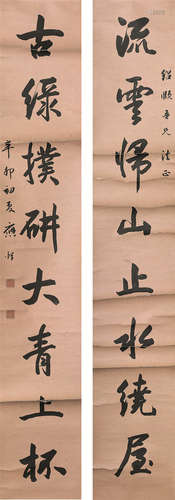 紹顥吾兄 法正
流雲歸山止水繞屋
古緑撲研大青上杯
辛卯初夏